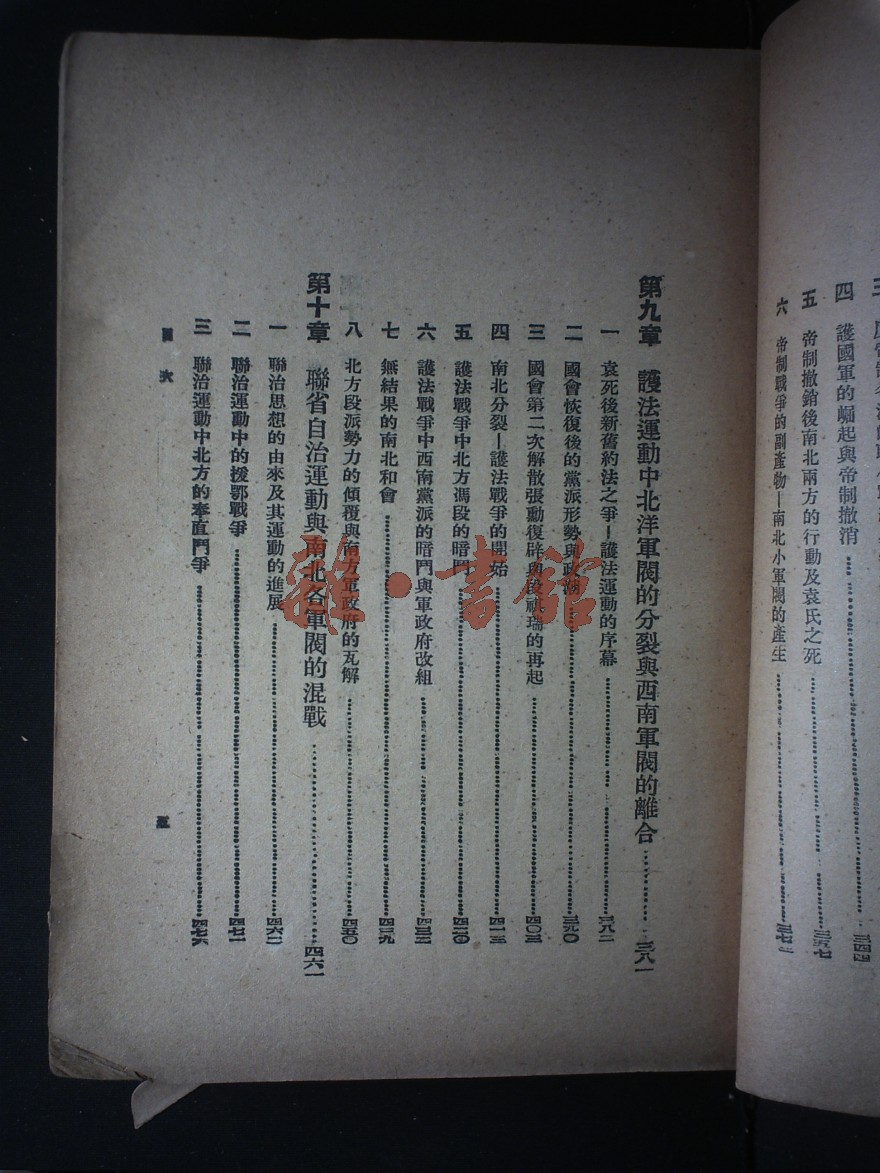 四 護國軍的崛起與帝制撤消
五 帝制撤銷後南北兩方的行動及袁氏之死
六 帝制戰爭的副產物—南北小軍閥的產生
第九章 護法運動中北洋軍閥的分裂與西南軍閥的離合 三八一
一 袁死後新舊約法之爭—護法運動的序幕
二 國會恢復後的黨派形勢與政潮 三九〇
三 國會第二次解散張勳復辟與段祺瑞的再起 四〇三
四 南北分裂—護法戰爭的開始 四一三
五 護法戰爭中北方馮段的暗鬥 四二〇
六 護法戰爭中西南黨派的暗鬥與軍政府改組 四三二
七 無結果的南北和會 四三九
八 北方段派勢力的傾覆與南方軍政府的瓦解 四五〇
第十章 聯省自治運動與南北各軍閥的混戰 四六一
一 聯治思想的由來及其運動的進展 四六二
二 聯治運動中的援鄂戰爭 四七一
三 聯治運動中北方的奉直鬥爭 四七六
目次
五
雜·書館